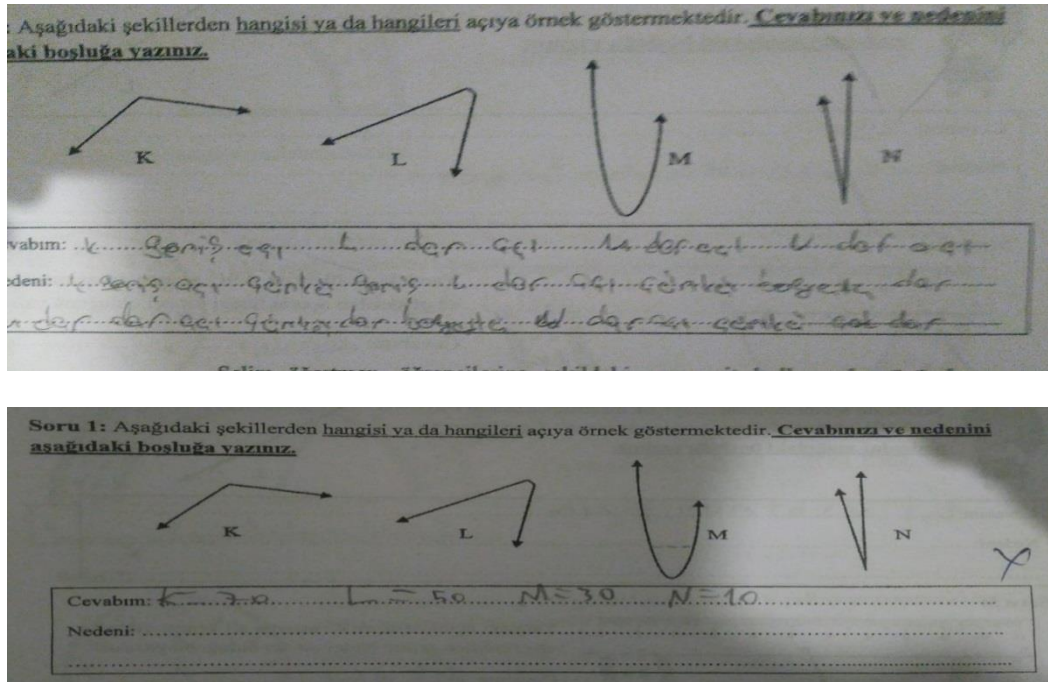 : Aşağıdaki şekillerden hangisi ya da hangileri açıya örnek göstermektedir. Cevabınızı ve nedenini
aki boşluğa yazınız.
K L M N
vabım: K geniş açı L dar açı M dar açı N dar açı
edeni: K geniş açı çünkü geniş L dar açı çünkü dar
dar dar açı çünkü dar dar açı çünkü çok dar
Soru 1: Aşağıdaki şekillerden hangisi ya da hangileri açıya örnek göstermektedir. Cevabınızı ve nedenini
aşağıdaki boşluğa yazınız.
K L M N
Cevabım: K = 70 L = 50 M = 30 N = 10
Nedeni: